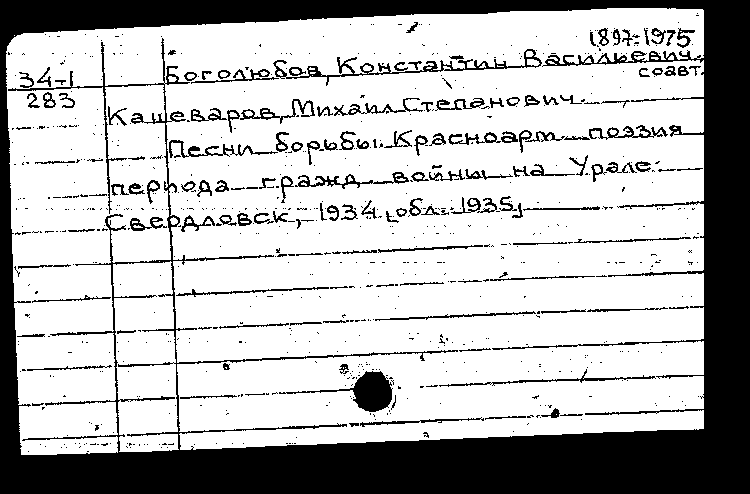 1897-1975
34-1
283
Боголюбов, Константин Васильевич,
соавт.
Кашеваров, Михаил Степанович.
Песни борьбы. Красноарм. поэзия
периода гражд. войны на Урале.
Свердловск, 1934 [обл.: 1935]